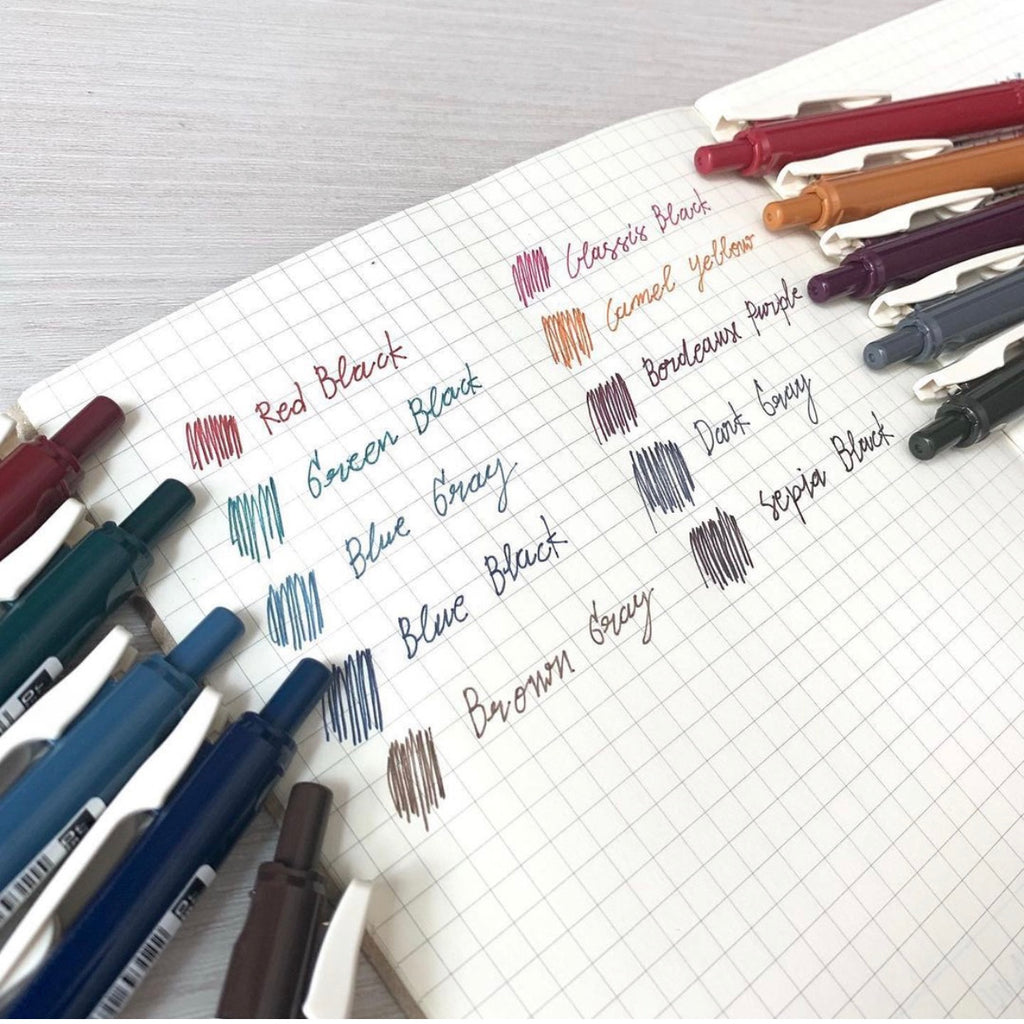 Red Black
Green Black
Blue Gray
Blue Black
Brown Gray
Glassis Black
Camel Yellow
Bordeaux Purple
Dark Gray
Sepia Black